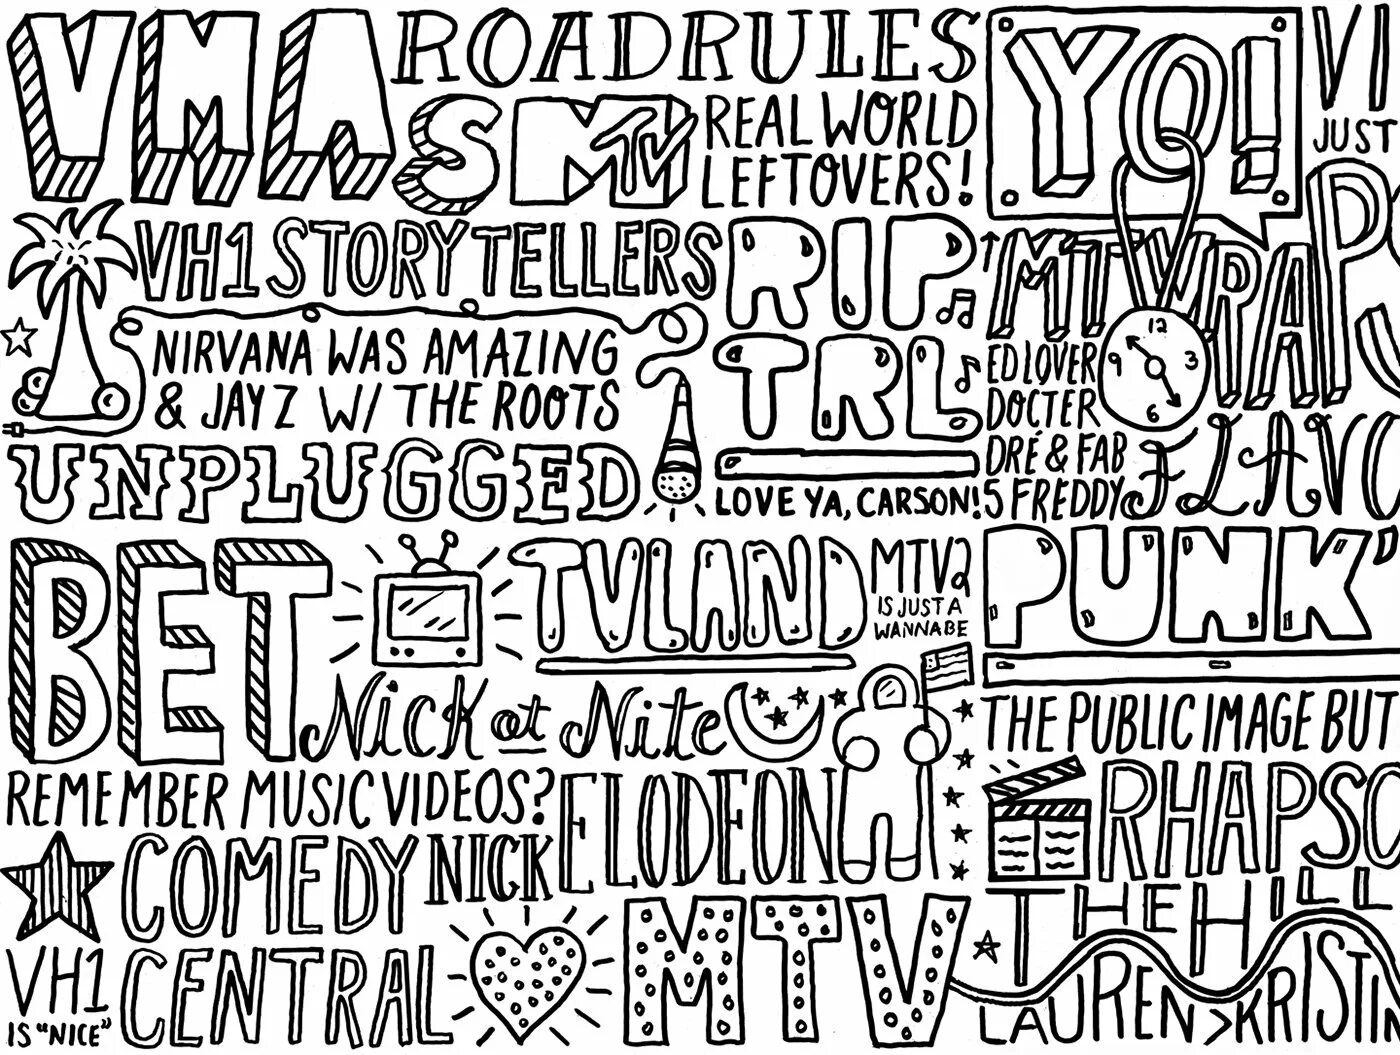 VMAS
ROADRULES
MTV
REAL WORLD
LEFTOVERS!
YO!
JUST
VH1 STORYTELLERS
NIRVANA WAS AMAZING
& JAY Z W/ THE ROOTS
UNPLUGGED
RIP
TRL
LOVE YA, CARSON!
MTV RAPS
12
3
6
9
ED LOVER
DOCTER
DRÉ & FAB
5 FREDDY
FLAVO
BET
TVLAND
MTV2
IS JUST A
WANNABE
PUNK'
Nick at Nite
THE PUBLIC IMAGE BUT
REMEMBER MUSIC VIDEOS?
NICKELODEON
RHAPSO
COMEDY
CENTRAL
VH1
IS "NICE"
MTV
THE HILL
LAUREN > KRISTIN